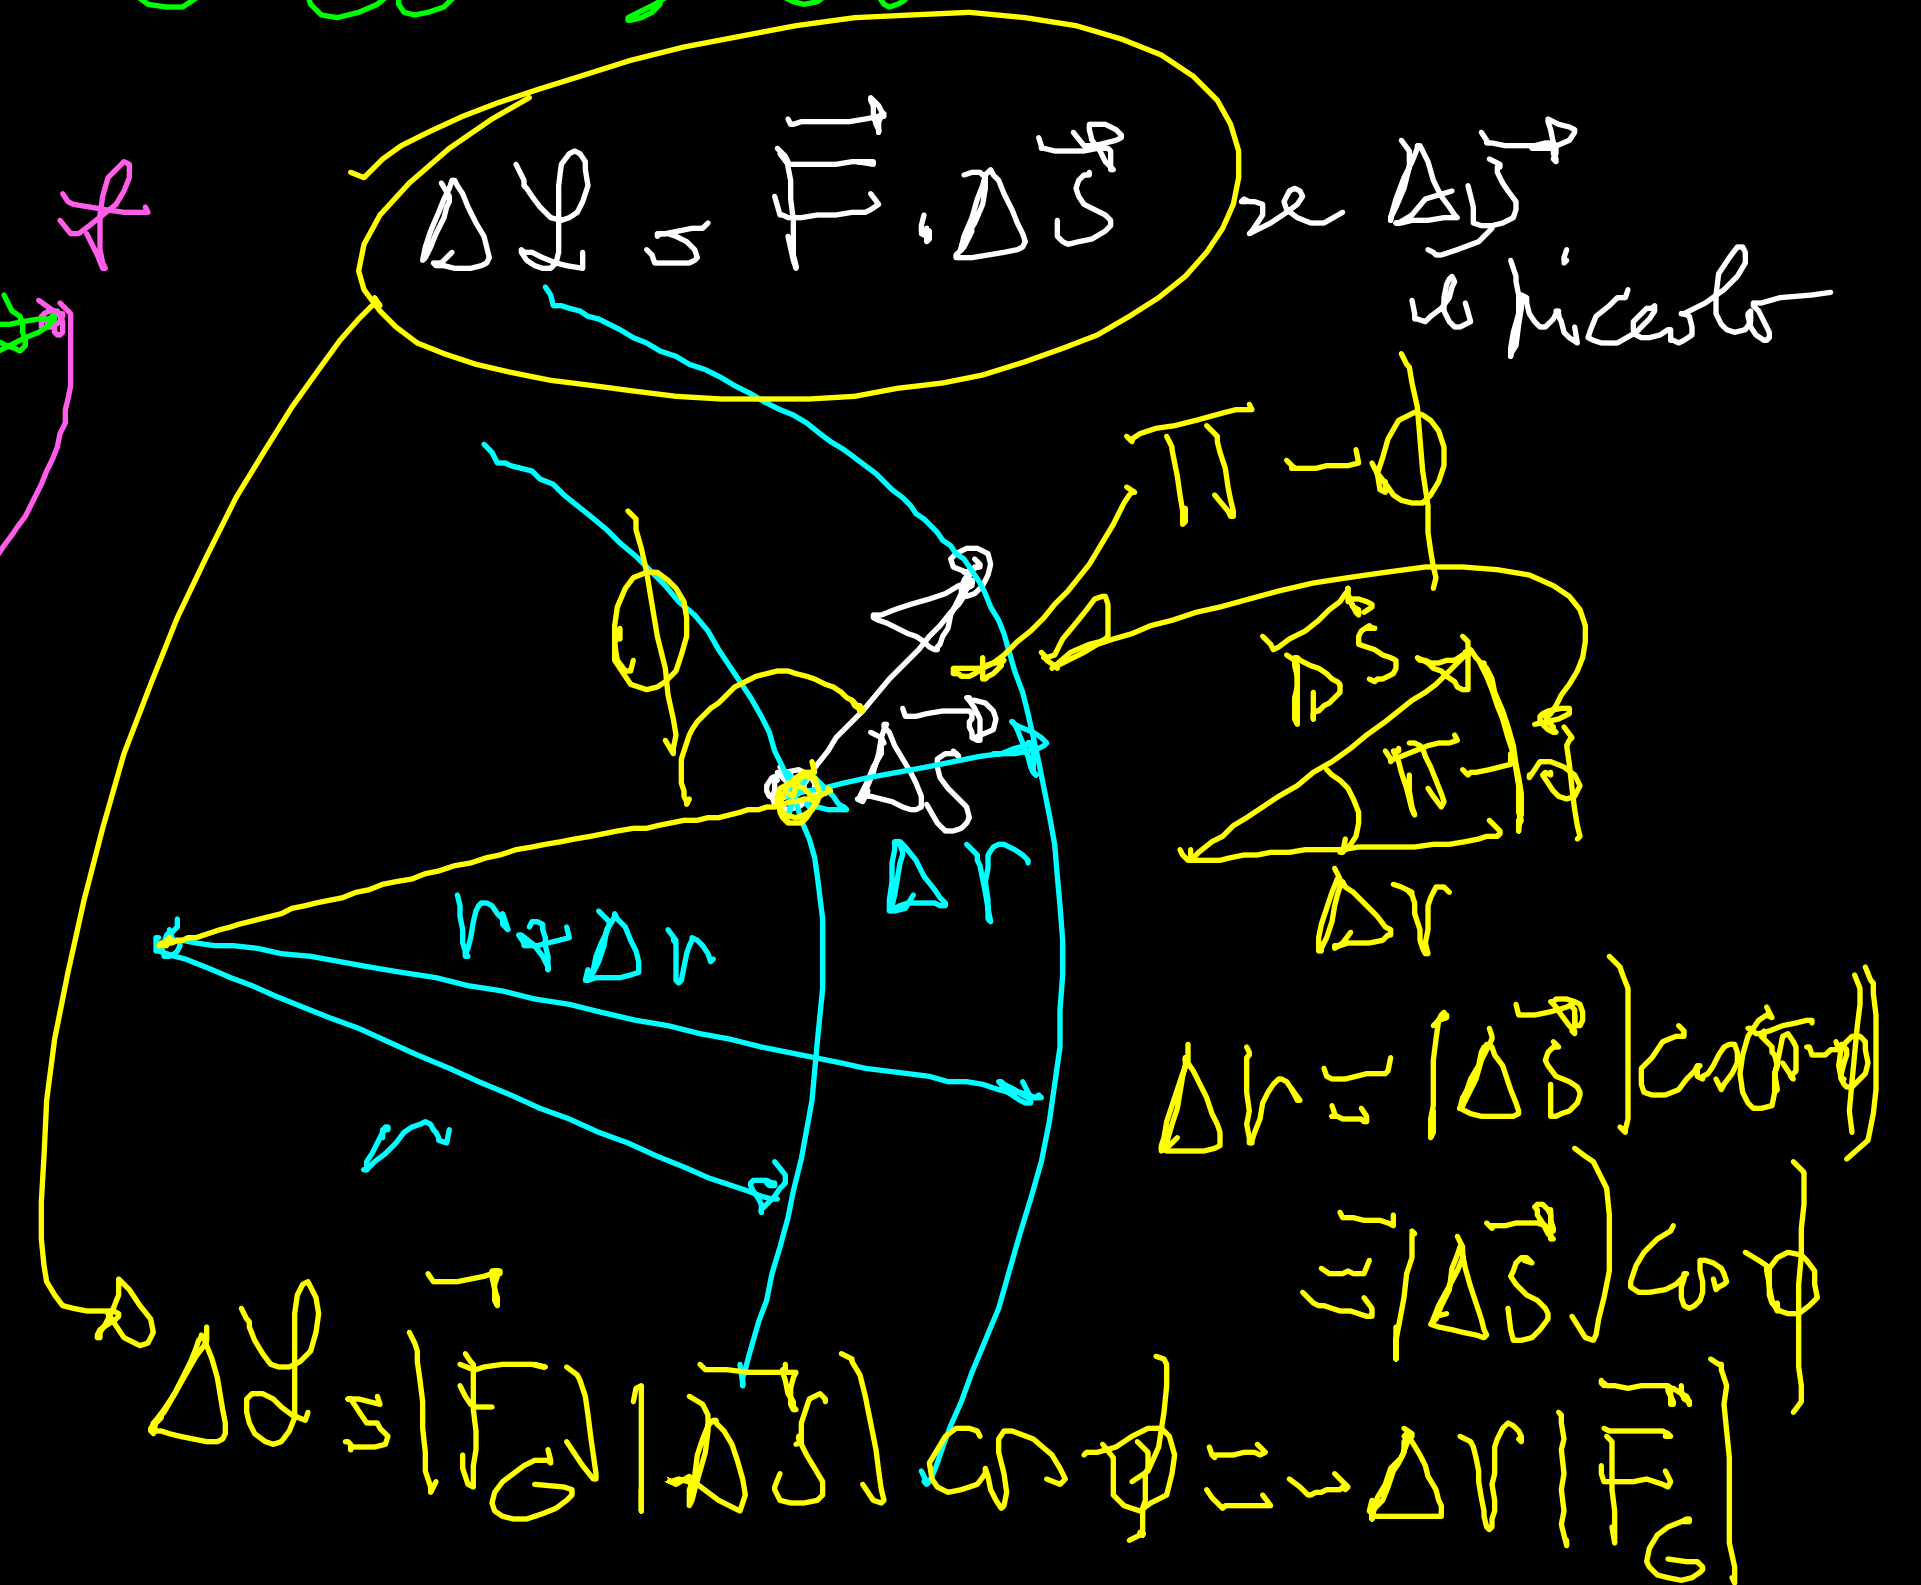 Δℒ = F⃗ · Δs⃗ se Δs⃗
è piccolo
π - φ
φ
Δs⃗
Δs⃗
π - φ
Δr
Δr
r+Δr
r
Δr = |Δs⃗| cos(π-φ)
= -|Δs⃗| cos φ
Δℒ = |F⃗_G| |Δs⃗| cos φ = -Δr |F⃗_G|